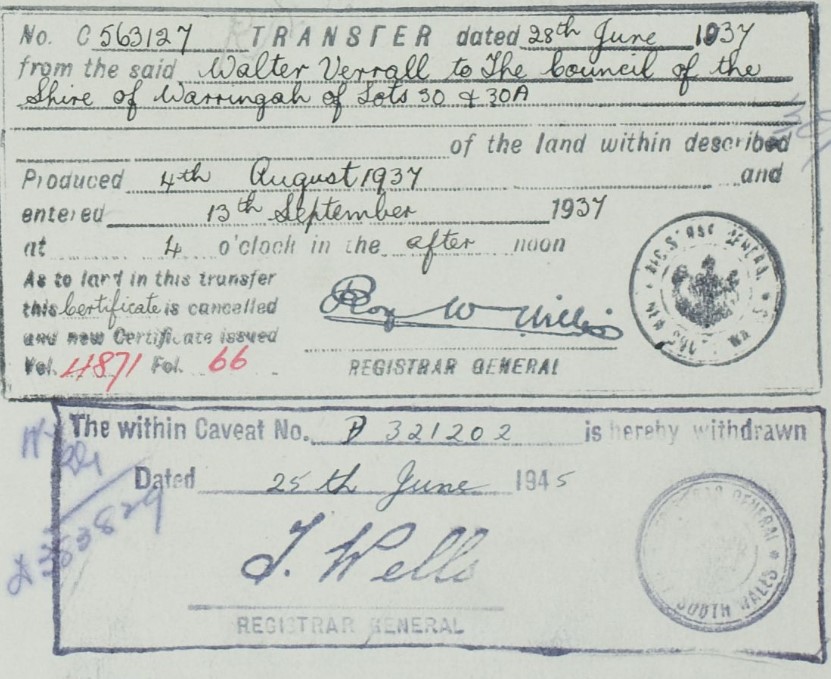 No. C 563127 TRANSFER dated 28th June 1937
from the said Walter Verrall to The Council of the
Shire of Warringah of Lots 30 & 30A
of the land within described
Produced 4th August 1937 and
entered 13th September 1937
at 4 o'clock in the after noon
As to land in this transfer
this Certificate is cancelled
and new Certificate issued
Vol. 4871 Fol. 66
Roy W Willis
REGISTRAR GENERAL
REGISTRAR GENERAL
The within Caveat No. D 321202 is hereby withdrawn
Dated 25th June 1945
J. Wells
REGISTRAR GENERAL
REGISTRAR GENERAL
SOUTH WALES